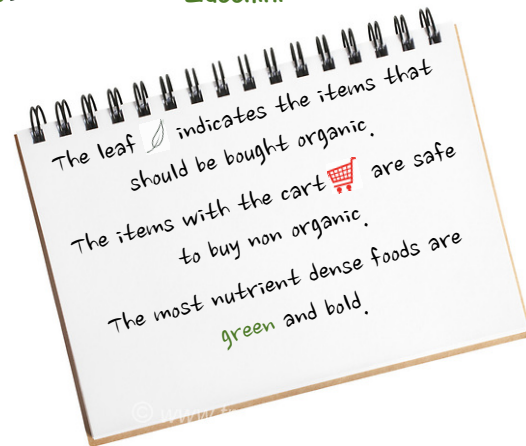 The leaf indicates the items that
should be bought organic.
The items with the cart are safe
to buy non organic.
The most nutrient dense foods are
green and bold.
© www